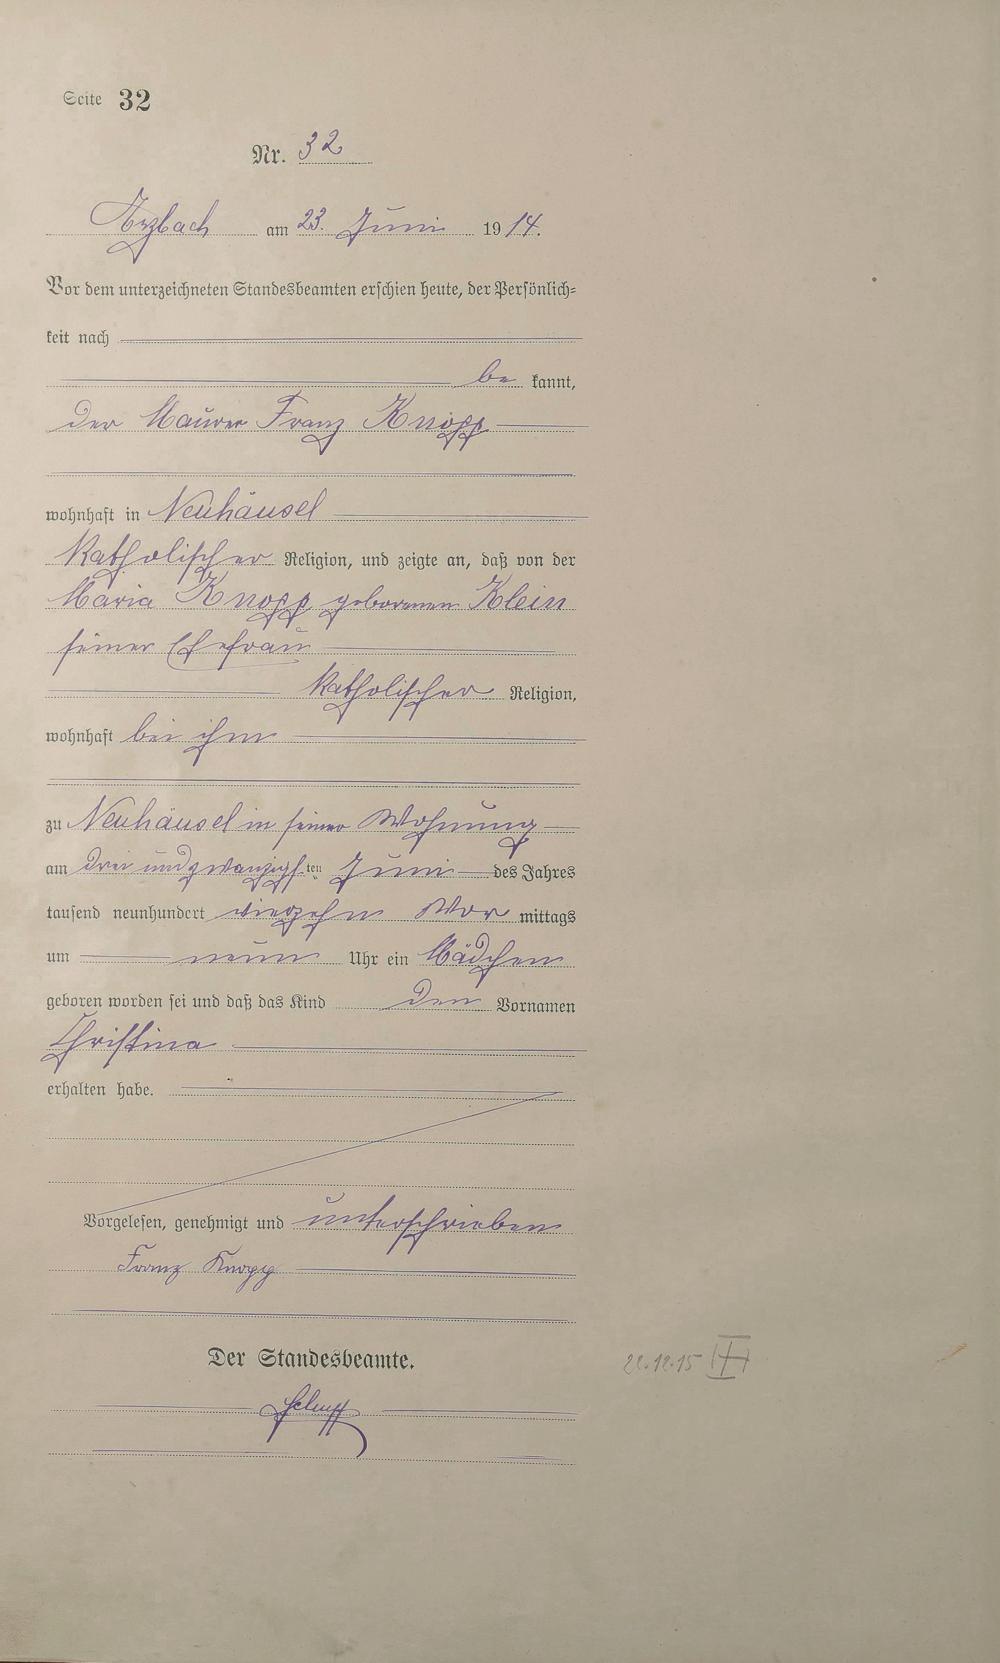 Seite 32
Nr. 32
Arzbach am 23. Juni 1914.
Vor dem unterzeichneten Standesbeamten erschien heute, der Persönlich=
keit nach
be kannt,
der Maurer Franz Knopp
wohnhaft in Neuhäusel
katholischer Religion, und zeigte an, daß von der
Maria Knopp geborenen Klein
seiner Ehefrau
katholischer Religion,
wohnhaft bei ihm
zu Neuhäusel in seiner Wohnung
am drei und zwanzigsten Juni des Jahres
tausend neunhundert vierzehn Vor mittags
um neun Uhr ein Mädchen
geboren worden sei und daß das Kind den Vornamen
Christina
erhalten habe.
Vorgelesen, genehmigt und unterschrieben
Franz Knopp
Der Standesbeamte.